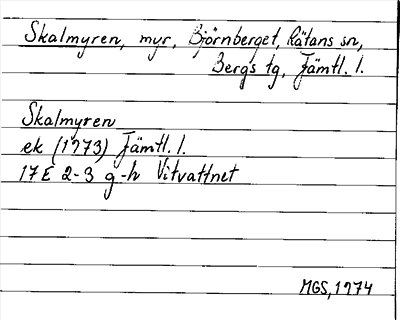 Skalmyren, myr, Björnberget, Rätans sn,
Bergs tg, Jämtl. l.
Skalmyren
ek (1973) Jämtl. l.
17E 2-3 g-h Vitvattnet
MGS, 1974